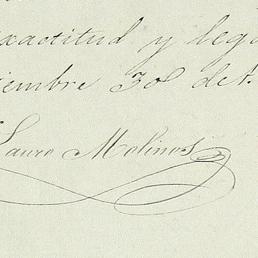 xactitud y lega
iembre 30 de 1
Lauro Molinos